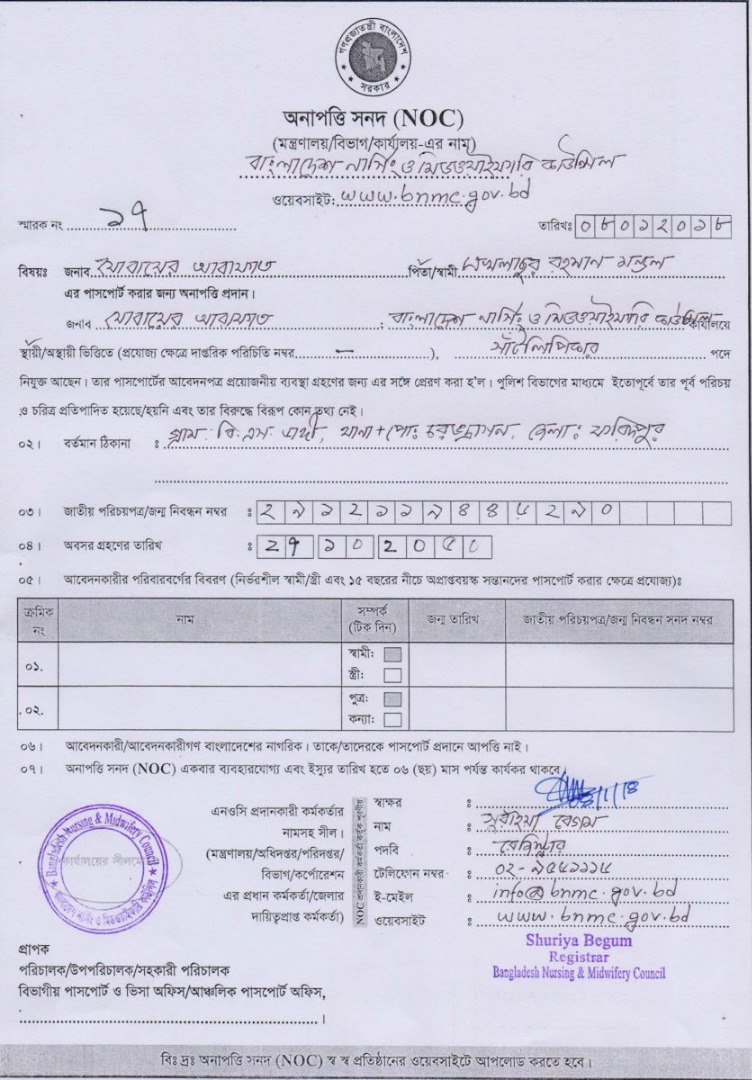 গণপ্রজাতন্ত্রী বাংলাদেশ
সরকার
অনাপত্তি সনদ (NOC)
(মন্ত্রণালয়/বিভাগ/কার্যালয়-এর নাম)
বাংলাদেশ নার্সিং ও মিডওয়াইফারি কাউন্সিল
ওয়েবসাইট: www.bnmc.gov.bd
স্মারক নং ১৭ তারিখঃ ০৮০১২০১৮
বিষয়ঃ জনাব যোবায়ের আরাফাত পিতা/স্বামী রহমান মন্ডল
এর পাসপোর্ট করার জন্য অনাপত্তি প্রদান।
জনাব যোবায়ের আরাফাত, বাংলাদেশ নার্সিং ও মিডওয়াইফারি কাউন্সিল কার্যালয়ে
স্থায়ী/অস্থায়ী ভিত্তিতে (প্রযোজ্য ক্ষেত্রে দাপ্তরিক পরিচিতি নম্বর — ), সাঁটলিপিকার পদে
নিযুক্ত আছেন। তার পাসপোর্টের আবেদনপত্র প্রয়োজনীয় ব্যবস্থা গ্রহণের জন্য এর সঙ্গে প্রেরণ করা হ'ল। পুলিশ বিভাগের মাধ্যমে ইতোপূর্বে তার পূর্ব পরিচয়
ও চরিত্র প্রতিপাদিত হয়েছে/হয়নি এবং তার বিরুদ্ধে বিরূপ কোন তথ্য নেই।
০২। বর্তমান ঠিকানা : গ্রাম: বি.এস ডাঙ্গী, থানা+পোঃ চরভদ্রাসন, জেলাঃ ফরিদপুর
০৩। জাতীয় পরিচয়পত্র/জন্ম নিবন্ধন নম্বর :
০৪। অবসর গ্রহণের তারিখ : ২৭১০২০৫০
০৫। আবেদনকারীর পরিবারবর্গের বিবরণ (নির্ভরশীল স্বামী/স্ত্রী এবং ১৫ বছরের নীচে অপ্রাপ্তবয়স্ক সন্তানদের পাসপোর্ট করার ক্ষেত্রে প্রযোজ্য)ঃ
ক্রমিক নং নাম সম্পর্ক (টিক দিন) জন্ম তারিখ জাতীয় পরিচয়পত্র/জন্ম নিবন্ধন সনদ নম্বর
০১. স্বামী:
স্ত্রী:
০২. পুত্র:
কন্যা:
০৬। আবেদনকারী/আবেদনকারীগণ বাংলাদেশের নাগরিক। তাকে/তাদেরকে পাসপোর্ট প্রদানে আপত্তি নাই।
০৭। অনাপত্তি সনদ (NOC) একবার ব্যবহারযোগ্য এবং ইস্যুর তারিখ হতে ০৬ (ছয়) মাস পর্যন্ত কার্যকর থাকবে।
Bangladesh Nursing & Midwifery Council
কার্যালয়ের সীলমোহর
বাংলাদেশ নার্সিং ও মিডওয়াইফারি কাউন্সিল
এনওসি প্রদানকারী কর্মকর্তার
নামসহ সীল।
(মন্ত্রণালয়/অধিদপ্তর/পরিদপ্তর/
বিভাগ/কর্পোরেশন
এর প্রধান কর্মকর্তা/জেলার
দায়িত্বপ্রাপ্ত কর্মকর্তা)
NOC প্রদানকারী কর্মকর্তা কর্তৃক পূরণীয়
স্বাক্ষর :
নাম : সুরাইয়া বেগম
পদবি : রেজিস্ট্রার
টেলিফোন নম্বর : ০২-৯৫৬১১১৬
ই-মেইল : info@bnmc.gov.bd
ওয়েবসাইট : www.bnmc.gov.bd
Shuriya Begum
Registrar
Bangladesh Nursing & Midwifery Council
প্রাপক
পরিচালক/উপপরিচালক/সহকারী পরিচালক
বিভাগীয় পাসপোর্ট ও ভিসা অফিস/আঞ্চলিক পাসপোর্ট অফিস,
বিঃ দ্রঃ অনাপত্তি সনদ (NOC) স্ব স্ব প্রতিষ্ঠানের ওয়েবসাইটে আপলোড করতে হবে।